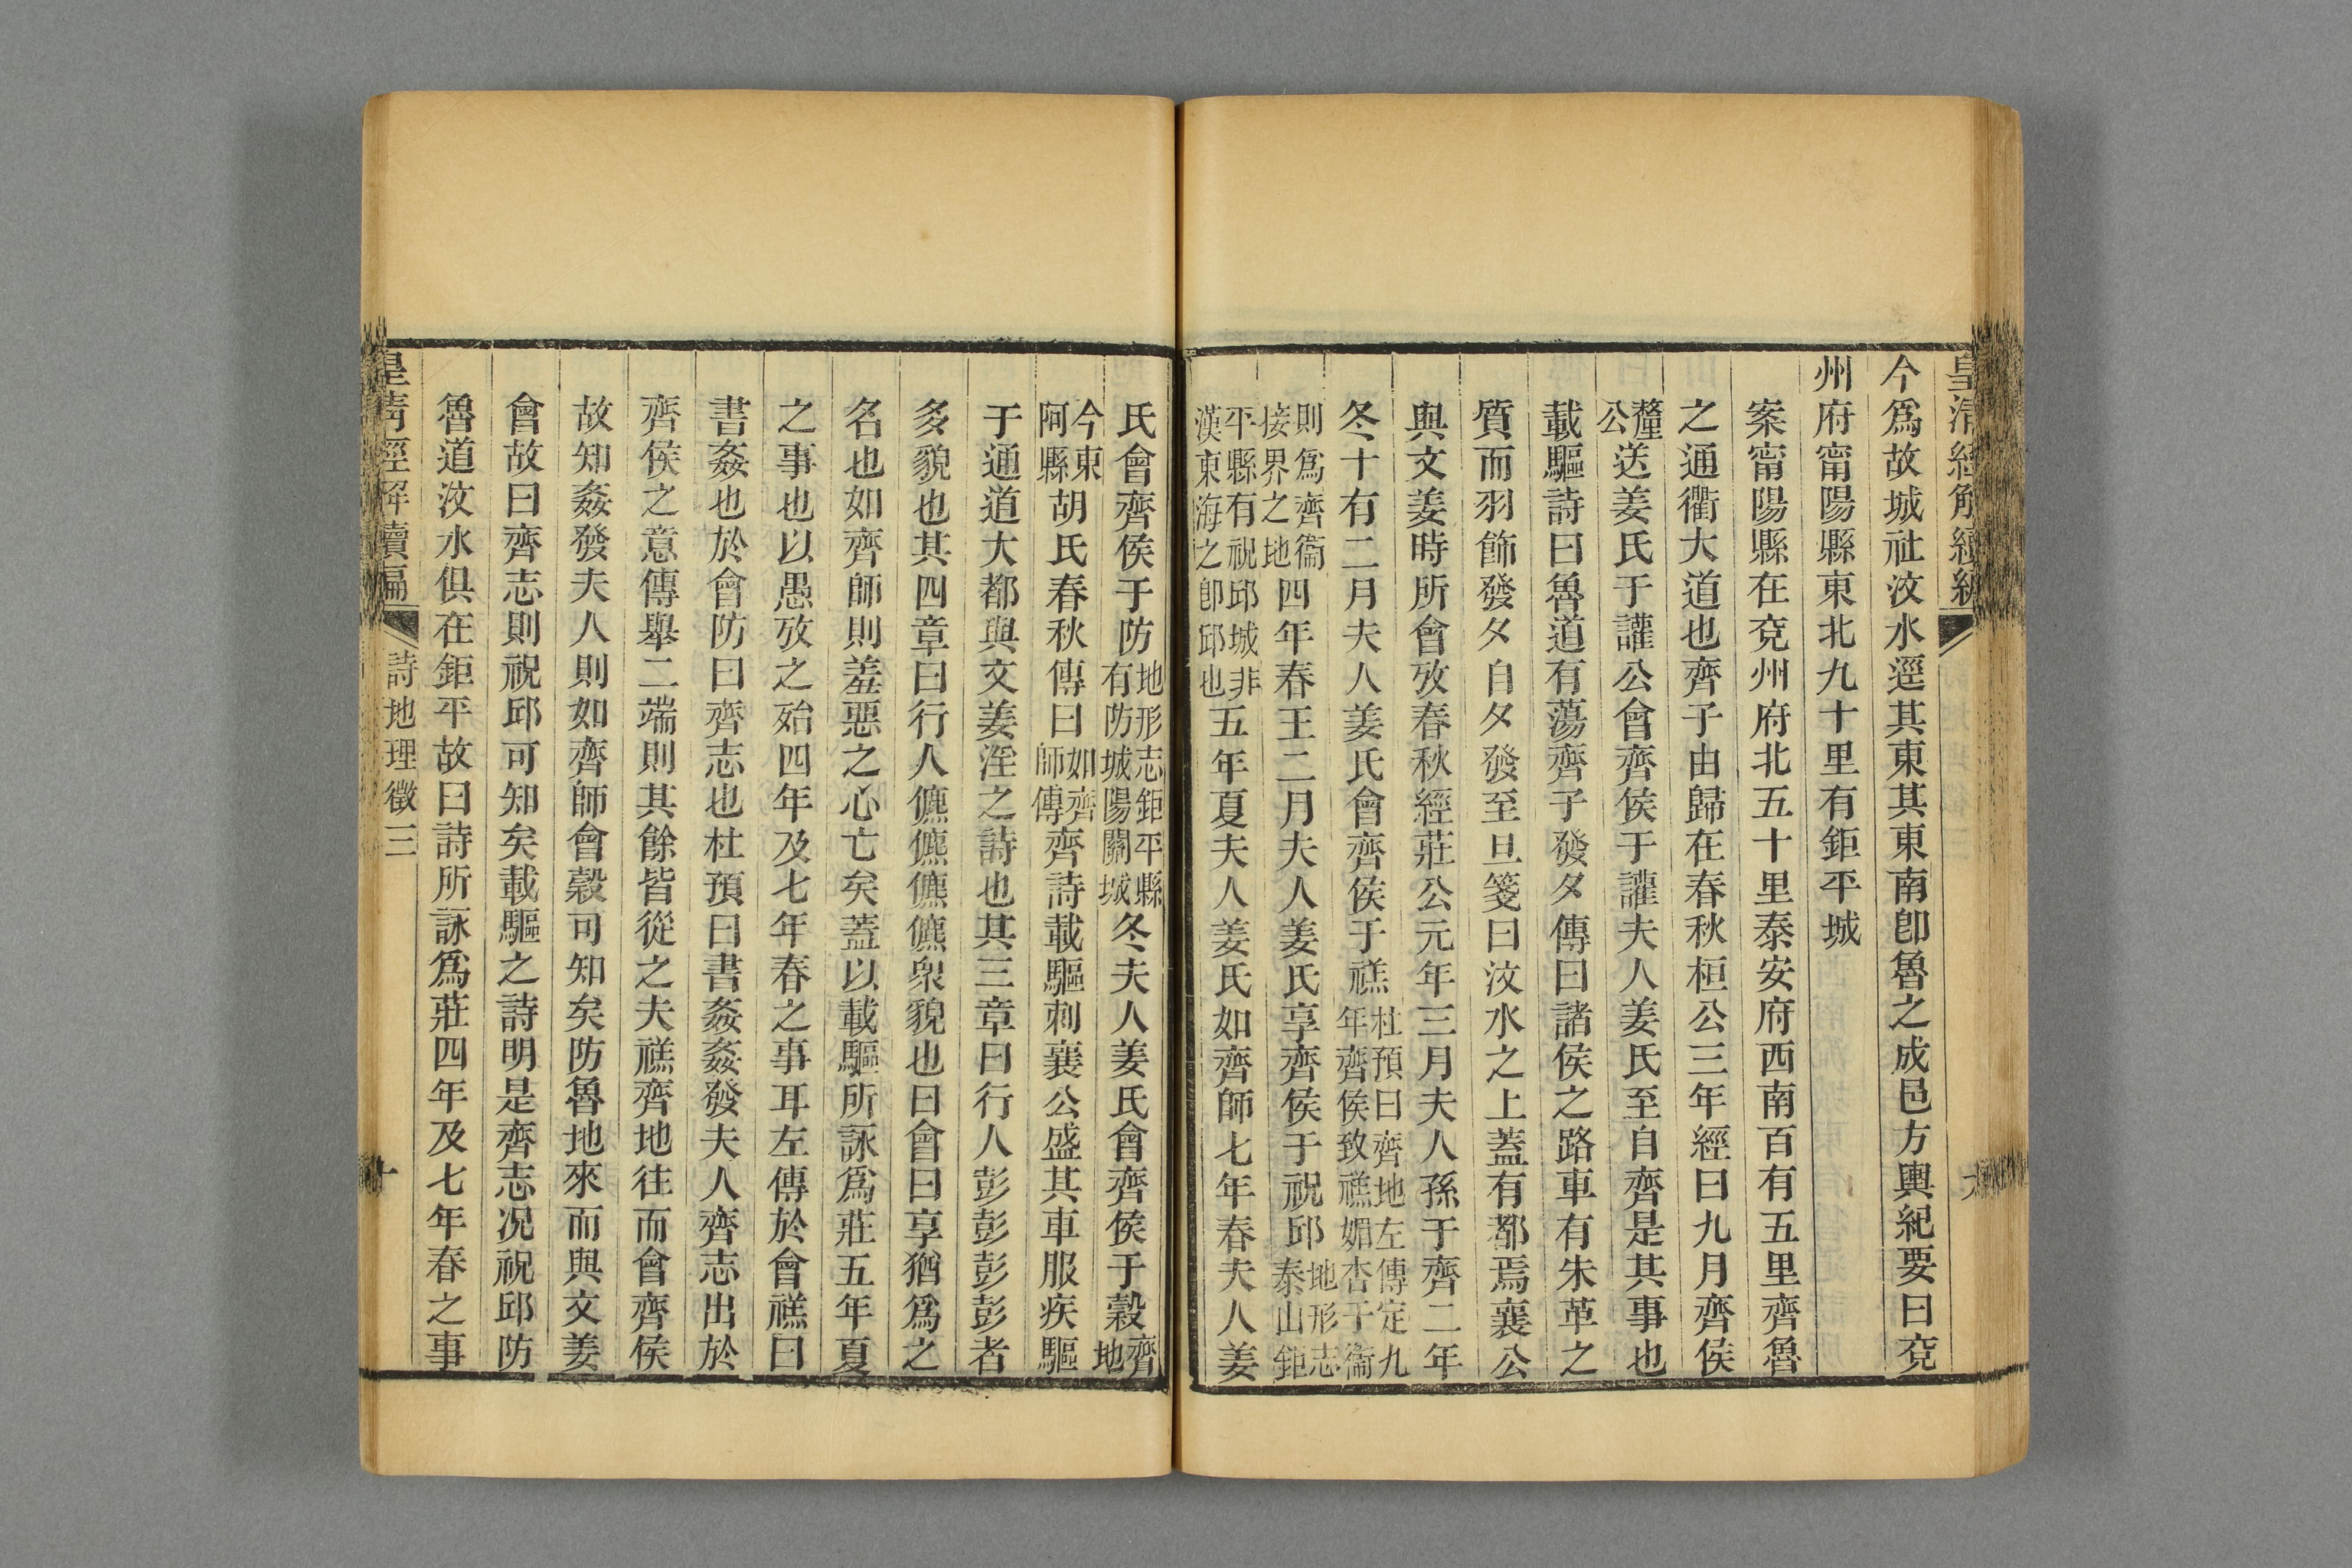 皇清經解續編
今爲故城社汶水逕其東其東南卽魯之成邑方輿紀要曰兗
州府甯陽縣東北九十里有鉅平城
案甯陽縣在兗州府北五十里泰安府西南百有五里齊魯
之通衢大道也齊子由歸在春秋桓公三年經曰九月齊侯
釐公送姜氏于讙公會齊侯于讙夫人姜氏至自齊是其事也
載驅詩曰魯道有蕩齊子發夕傳曰諸侯之路車有朱革之
質而羽飾發夕自夕發至旦箋曰汶水之上蓋有都焉襄公
與文姜時所會攷春秋經莊公元年三月夫人孫于齊二年
冬十有二月夫人姜氏會齊侯于禚杜預曰齊地左傳定九年齊侯致禚媚杏于衞
則爲齊衞接界之地四年春王二月夫人姜氏享齊侯于祝邱地形志泰山鉅
平縣有祝邱城非漢東海之卽邱也五年夏夫人姜氏如齊師七年春夫人姜
氏會齊侯于防地形志鉅平縣有防城陽關城冬夫人姜氏會齊侯于穀齊地
今東阿縣胡氏春秋傳曰如齊師傳齊詩載驅刺襄公盛其車服疾驅
于通道大都與文姜淫之詩也其三章曰行人彭彭彭彭者
多貌也其四章曰行人儦儦儦儦衆貌也曰會曰享猶爲之
名也如齊師則羞惡之心亡矣蓋以載驅所詠爲莊五年夏
之事也以愚攷之殆四年及七年春之事耳左傳於會禚曰
書姦也於會防曰齊志也杜預曰書姦姦發夫人齊志出於
齊侯之意傳舉二端則其餘皆從之夫禚齊地往而會齊侯
故知姦發夫人則如齊師會穀可知矣防魯地來而與文姜
會故曰齊志則祝邱可知矣載驅之詩明是齊志况祝邱防
魯道汶水俱在鉅平故曰詩所詠爲莊四年及七年春之事
皇清經解續編
詩地理徵三
十